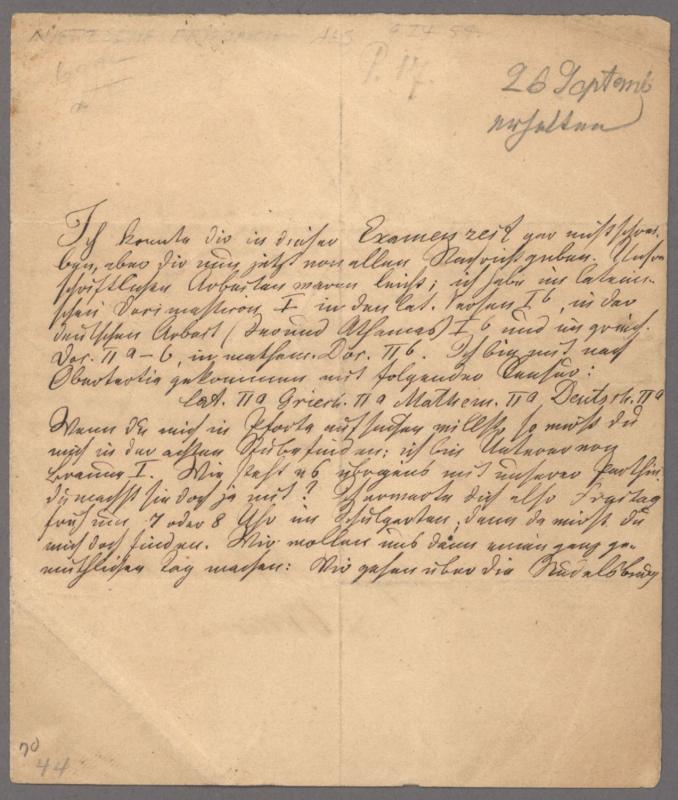 NIETZSCHE FRIEDRICH ALS
P. 17.
26 Septemb
erhalten
Ich konnte dir in dieser Examenzeit gar nicht schrei-
ben, aber dir nun jetzt von allen Nachricht geben. Unsre
schriftlichen Arbeiten waren leicht; ich habe im lateini-
schen Docimasticon I in den lat. Versen I b, in der
deutschen Arbeit ( und Athamas) I b und im griech.
Doc. II a – b, in mathem. Doc. II b. Ich bin mit nach
Obertertia gekommen mit folgender Censur:
Lat. II a Griech. II a Mathem. II a Deutsch. II a
Wenn du mich in Pforta aufsuchen willst, so wirst du
mich in der achten Stube finden; ich bin Unterer von
Braune I. Wie steht es übrigens mit unserer Parthie,
du machst sie doch ja mit? Ich erwarte dich also Freitag
früh um 7 oder 8 Uhr im Schulgarten; denn da wirst du
mich doch finden. Wir wollen uns dann einen ganz ge-
müthlichen Tag machen: Wir gehen über die Rudelsburg
70
44